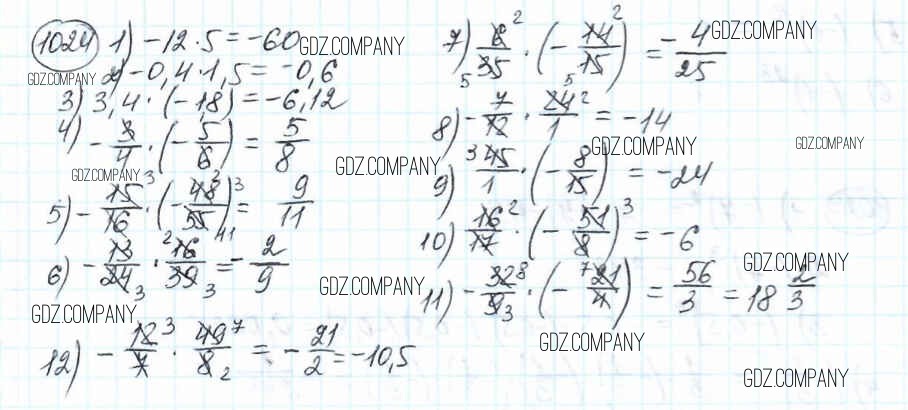 1024 1) -12·5 = -60 GDZ.COMPANY
GDZ.COMPANY 2) -0,4·1,5 = -0,6
3) 3,4·(-1,8) = -6,12
4) -3/4·(-5/6) = 5/8
GDZ.COMPANY
GDZ.COMPANY
5) -15/16 3·(-48/55 3 11) = 9/11
6) -13/24 3· 2 16/39 3 = -2/9
GDZ.COMPANY
GDZ.COMPANY
12) -12/7 3·49/8 7 2 = -21/2 = -10,5
7) 8/35 2 5·(-14/15 2 5) = -4/25
GDZ.COMPANY
8) -7/12·24/1 2 = -14
GDZ.COMPANY
GDZ.COMPANY
9) 3 45/1·(-8/15) = -24
10) 16/17 2·(-51/8) 3 = -6
GDZ.COMPANY
11) -32/9 8 3·(- 7 21/4) = 56/3 = 18 2/3
GDZ.COMPANY
GDZ.COMPANY